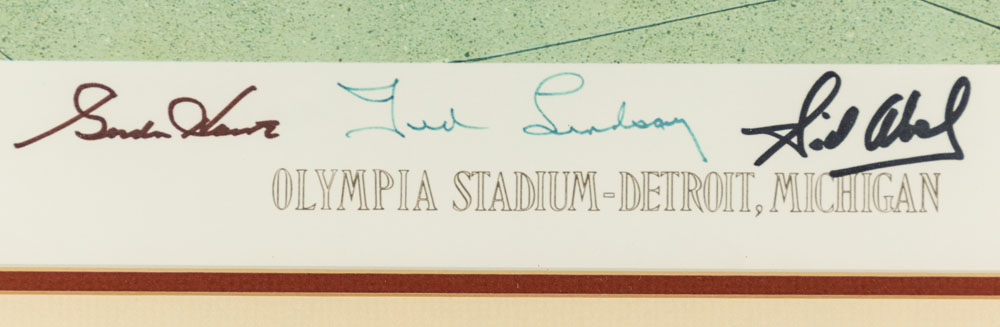 Gordon Howe Ted Lindsay Sid Abel
OLYMPIA STADIUM-DETROIT, MICHIGAN